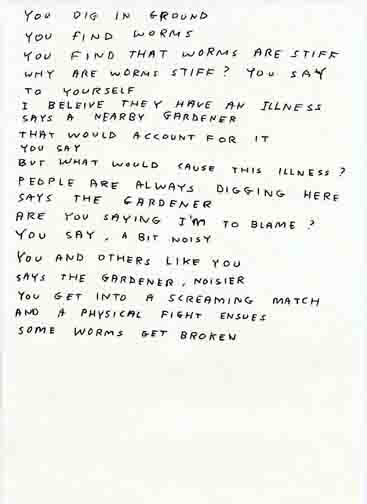 YOU DIG IN GROUND
YOU FIND WORMS
YOU FIND THAT WORMS ARE STIFF
WHY ARE WORMS STIFF? YOU SAY
TO YOURSELF
I BELEIVE THEY HAVE AN ILLNESS
SAYS A NEARBY GARDENER
THAT WOULD ACCOUNT FOR IT
YOU SAY
BUT WHAT WOULD CAUSE THIS ILLNESS?
PEOPLE ARE ALWAYS DIGGING HERE
SAYS THE GARDENER
ARE YOU SAYING I'M TO BLAME?
YOU SAY, A BIT NOISY
YOU AND OTHERS LIKE YOU
SAYS THE GARDENER, NOISIER
YOU GET INTO A SCREAMING MATCH
AND A PHYSICAL FIGHT ENSUES
SOME WORMS GET BROKEN